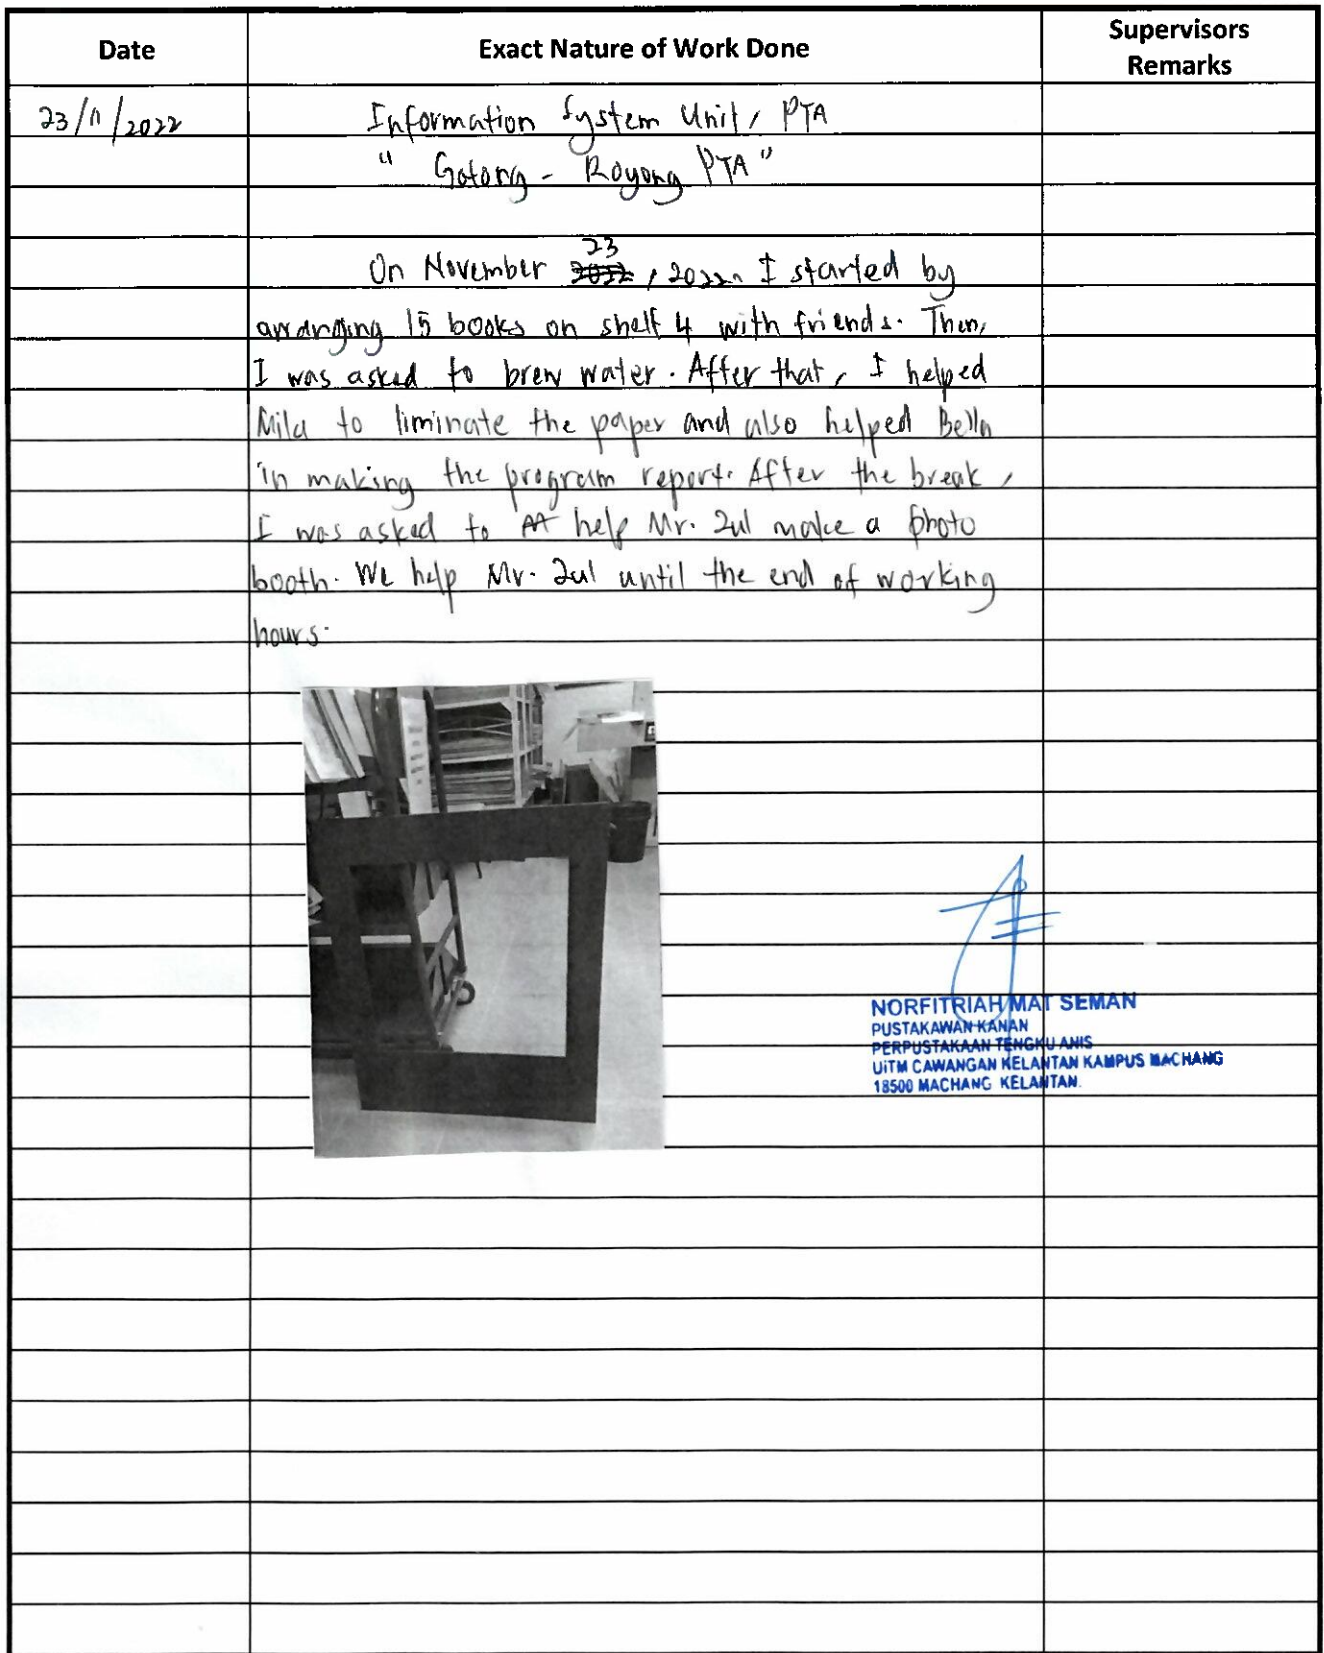 Date
Exact Nature of Work Done
Supervisors
Remarks
23/11/2022
Information System Unit, PTA
" Gotong - Royong PTA "
23
On November 2022, 2022. I started by
arranging 15 books on shelf 4 with friends. Then,
I was asked to brew water. After that, I helped
Mila to liminate the paper and also helped Bella
in making the program report. After the break,
I was asked to help Mr. Zul make a photo
booth. We help Mr. Zul until the end of working
hours.
NORFITRIAH MAT SEMAN
PUSTAKAWAN KANAN
PERPUSTAKAAN TENGKU ANIS
UiTM CAWANGAN KELANTAN KAMPUS MACHANG
18500 MACHANG KELANTAN.